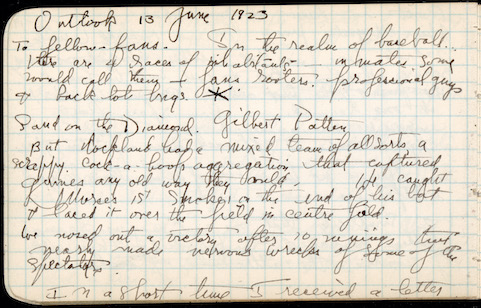 Outlook 13 June 1923
To fellow-fans. In the realm of baseball..
there are 4 races of inhabitants - inmates some
would call them - fans rooters. professional guys
& back lot bugs.
Sand on the Diamond. Gilbert Patten
But Rockland had a mixed team of all sorts, a
scrappy. cock-a-hoop aggregation that captured
games any old way they could. He caught
Morse's 1st smoker on the end of his bat
& laced it over the field in centre field.
We nosed out a victory after 10 innings that
nearly made nervous wrecks of some of the
spectators.
In a short time I received a letter